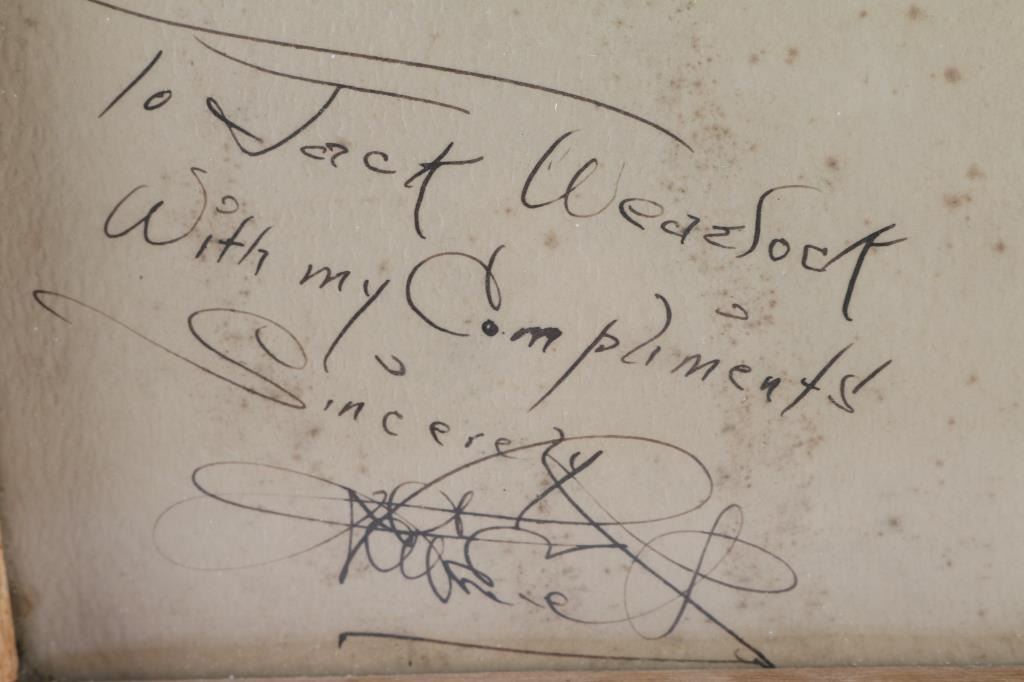 To Jack Wearlock
With my Compliments
Sincerely